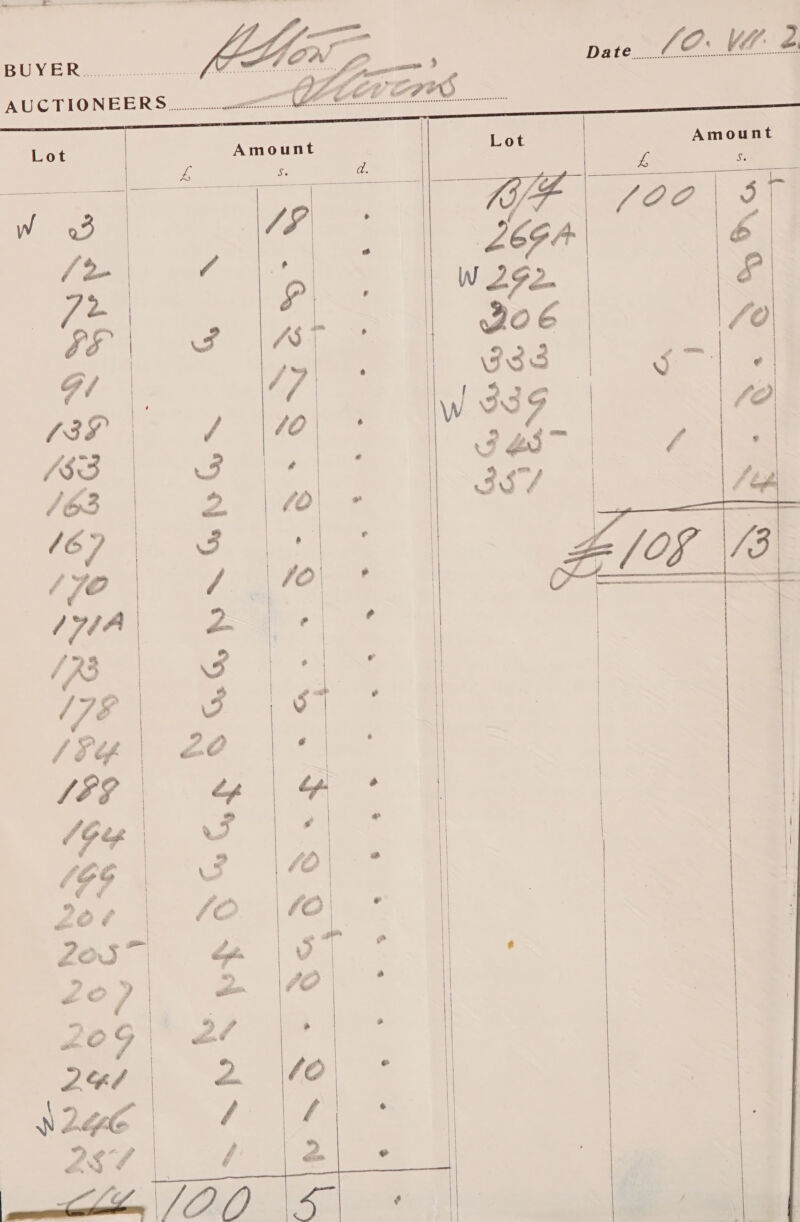 BUYER Alton
Date 10. VII. 2
AUCTIONEERS Stevens
Lot Amount
£ s. d.
W 3 18 .
12 1 . .
72 8 .
88 3 15 .
91 17 .
138 1 10 .
153 3 . .
163 2 10 .
167 3 . .
170 1 10 .
171A 2 . .
173 3 . .
178 3 5 .
184 20 . .
188 4 4 .
194 3 . .
199 3 10 .
201 10 10 .
205 4 5 .
207 2 10 .
209 21 . .
241 2 10 .
W 246 1 1 .
251 1 2 .
C/4 100 5 .
Lot Amount
£ s.
B/4 100 5
269A 6
W 292 8
306 10
333 5 .
W 339 10
345 1 .
351 14
£108 13